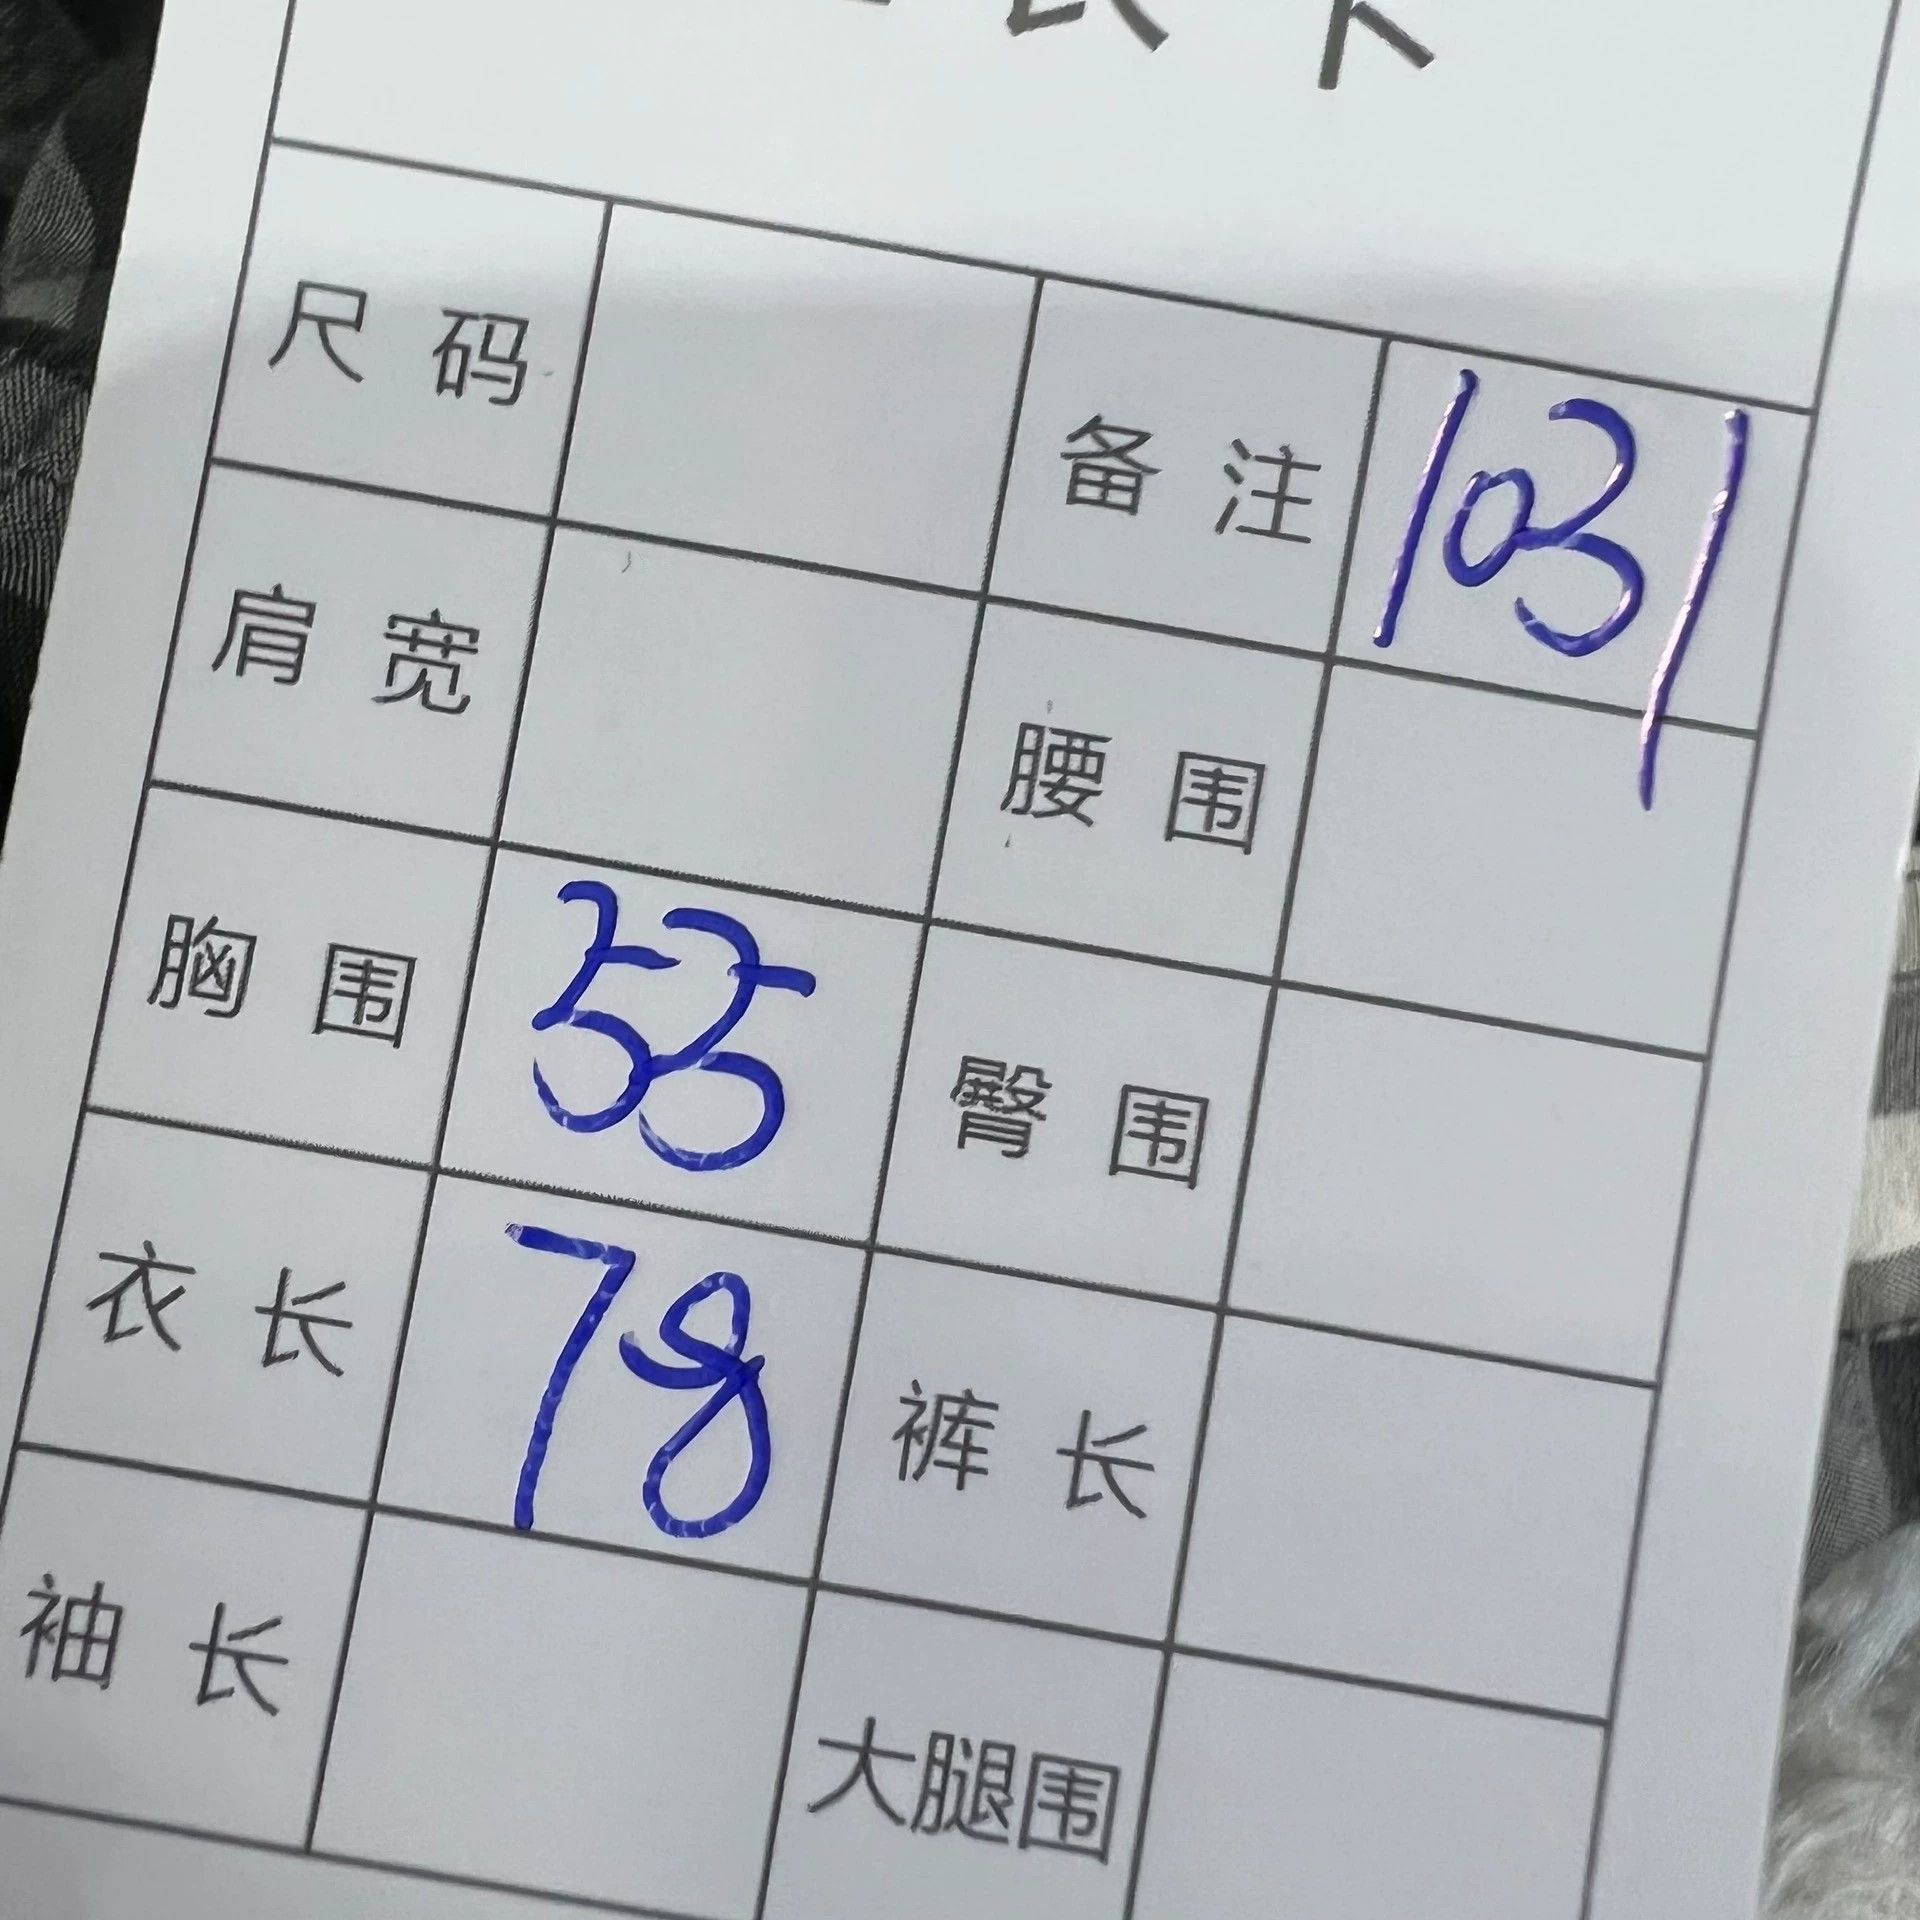 尺码 备注 1031
肩宽 腰围
胸围 55 臀围
衣长 78 裤长
袖长 大腿围